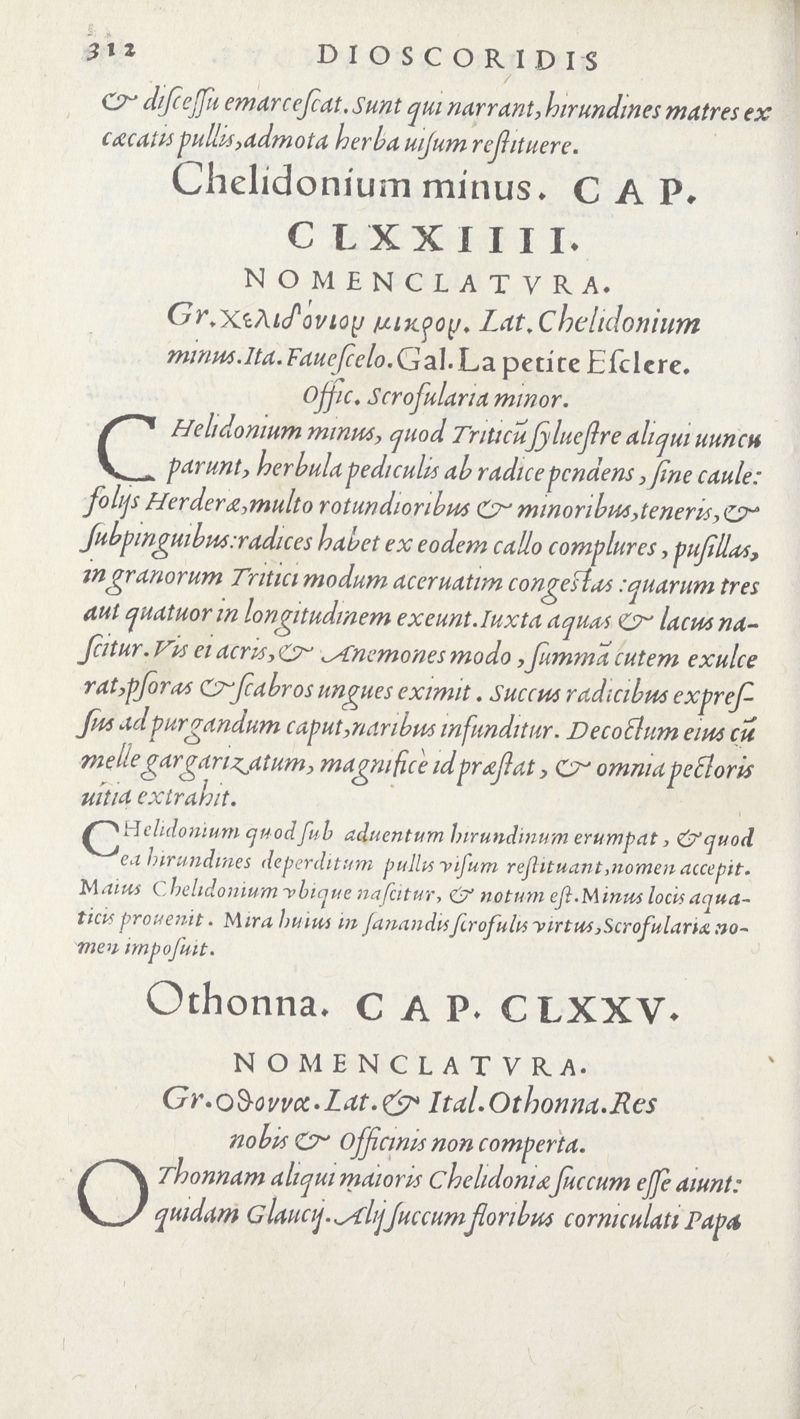 312 DIOSCORIDIS
& diſceſſu emarceſcat. Sunt qui narrant, hirundines matres ex
cæcatis pullis, admota herba uiſum reſtituere.
Chelidonium minus. CAP.
CLXXIIII.
NOMENCLATVRA.
Gr. χελιδόνιον μικρον. Lat. Chelidonium
minus. Ita. Faueſcelo. Gal. La petite Eſclere.
Offic. Scrofularia minor.
CHelidonium minus, quod Triticū ſylueſtre aliqui uuncu
parunt, herbula pediculis ab radice pendens, ſine caule:
folijs Herderæ, multo rotundioribus & minoribus, teneris, &
ſubpinguibus: radices habet ex eodem callo complures, puſillas,
in granorum Tritici modum aceruatim congeſtas: quarum tres
aut quatuor in longitudinem exeunt. Iuxta aquas & lacus na-
ſcitur. Vis ei acris, & Anemones modo, ſummā cutem exulce
rat, pſoras & ſcabros ungues eximit. Succus radicibus expreſ-
ſus ad purgandum caput, naribus infunditur. Decoctum eius cū
melle gargarizatum, magnificè id præſtat, & omnia pectoris
uitia extrahit.
CHelidonium quod ſub aduentum hirundinum erumpat, & quod
ea hirundines deperditum pullis viſum reſtituant, nomen accepit.
Maius Chelidonium vbique naſcitur, & notum eſt. Minus locis aqua-
ticis prouenit. Mira huius in ſanandis ſcrofulis virtus, Scrofulariæ no-
men impoſuit.
Othonna. CAP. CLXXV.
NOMENCLATVRA.
Gr. οθοννα. Lat. & Ital. Othonna. Res
nobis & Officinis non comperta.
OThonnam aliqui maioris Chelidoniæ ſuccum eſſe aiunt:
quidam Glaucij. Alij ſuccum floribus corniculati Papa